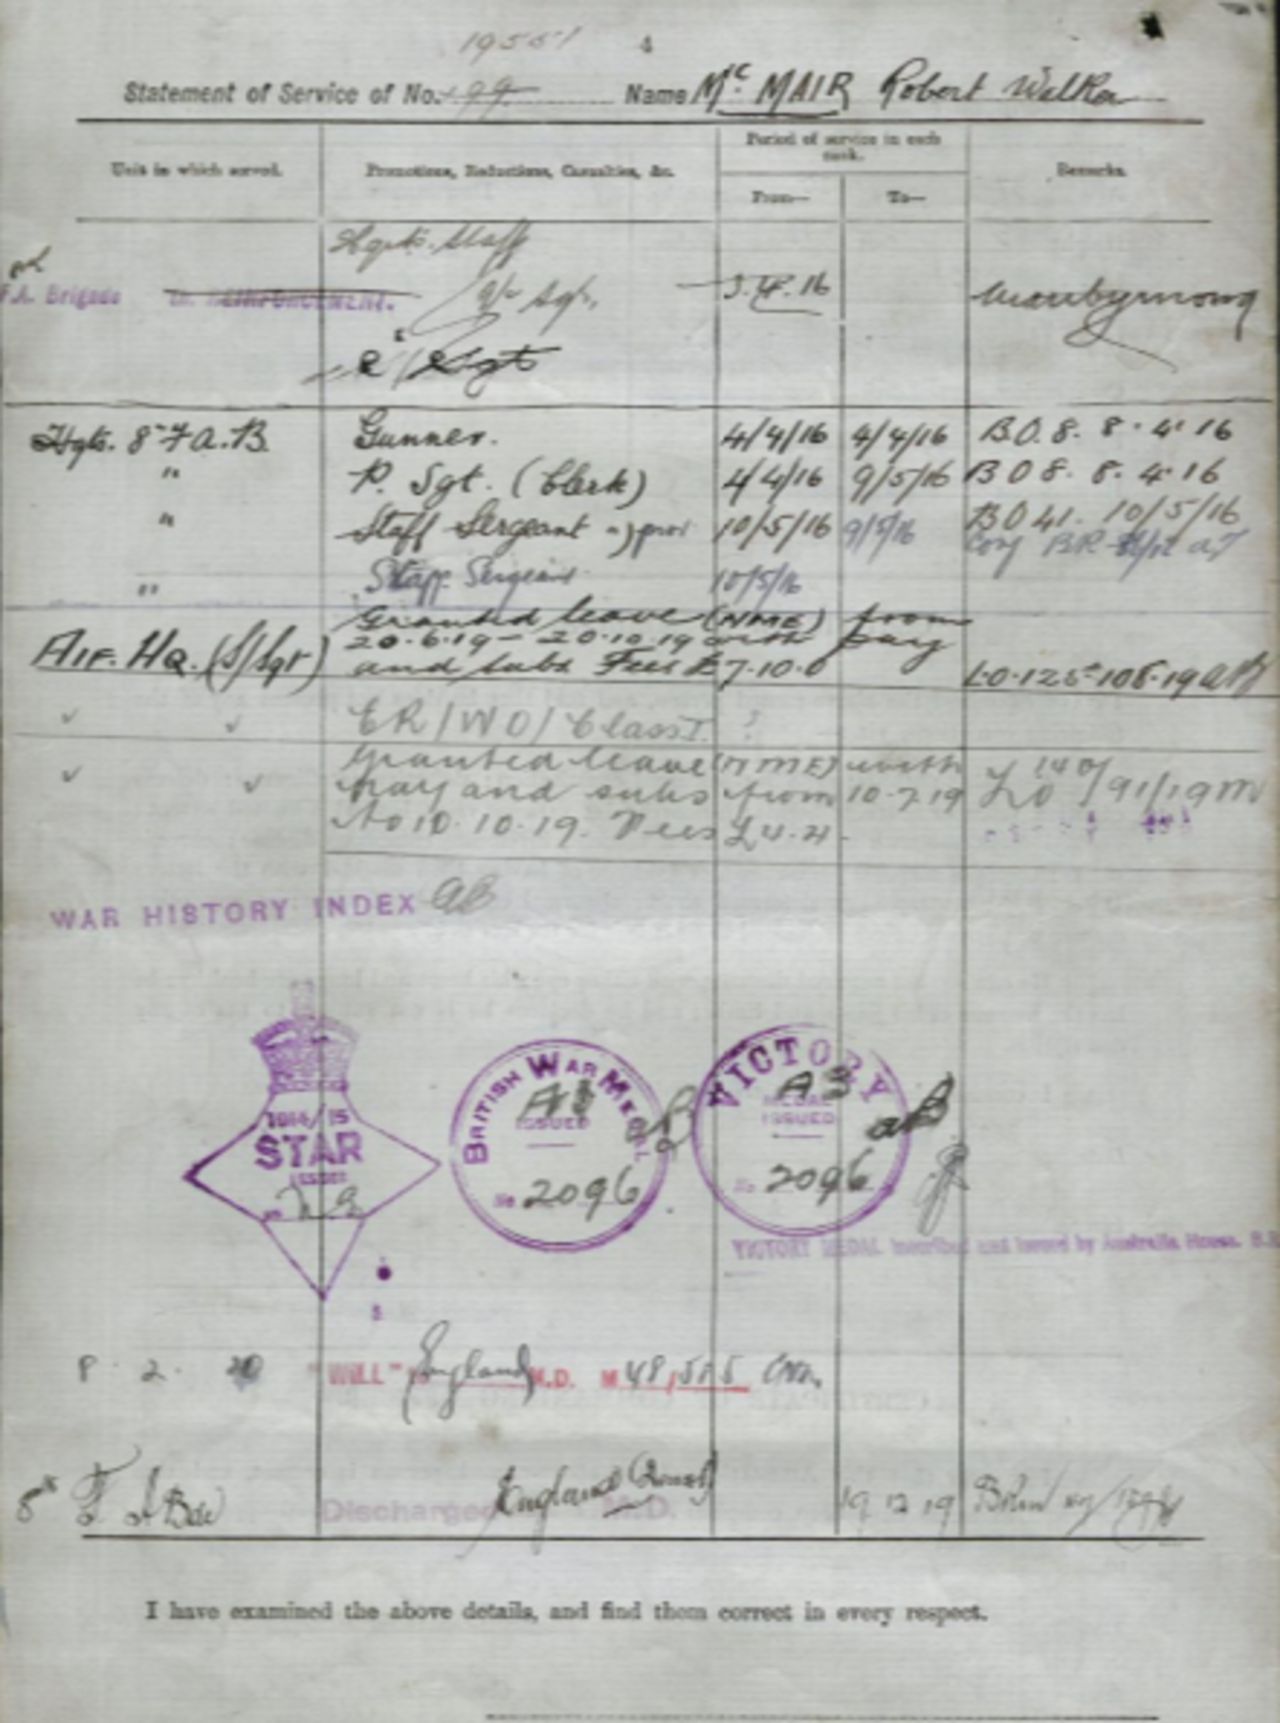 19551 4
Statement of Service of No. 99 Name McMAIR Robert Walker
Unit in which served. Promotions, Reductions, Casualties, &c. Period of service in each rank. Remarks.
From— To—
Hqrts. Staff
F.A. Brigade REINFORCEMENT. Sgt. 3.4.16 Maribyrnong
Sgt
Hqts. 8th F.A.B. Gunner. 4/4/16 4/4/16 B.O. 8. 8.4.16
" P. Sgt. (Clerk) 4/4/16 9/5/16 B O 8. 8.4.16
" Staff Sergeant prov 10/5/16 9/5/16 B O 41. 10/5/16
" Staff Sergeant 10/5/16
Granted leave (NME) from
20.6.19 – 20.10.19 with pay
AIF. HQ. (S/Sgt) and subs Fees £7.10.0
ER/WO/Class I.
Granted leave (NME) with
pay and subs from 10.7.19
to 10.10.19. Fees £4.4.
WAR HISTORY INDEX
1914/15
STAR
ISSUED
BRITISH WAR MEDAL
ISSUED
No 2096
VICTORY
MEDAL
ISSUED
No 2096
VICTORY MEDAL inscribed and issued by Australia House.
8.2.20 "WILL" England M.D.
8th F A Bde Discharged England M.D. 19 12 19
I have examined the above details, and find them correct in every respect.